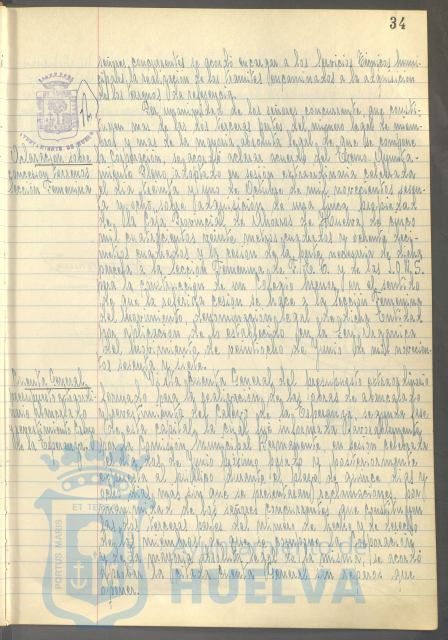 34
señores concurrentes se acordó encargar a los Servicios Técnicos Muni-
cipales, la realización de los trámites encaminados a la adquisición
de los terrenos de referencia.
Aclaración sobre
concesión terrenos
Sección Femenina
Por unanimidad de los señores concurrentes, que consti-
tuyen más de las dos terceras partes del número legal de miem-
bros y más de la mayoría absoluta legal de que se compone
la Corporación, se acordó aclarar acuerdo del Excmo. Ayunta-
miento Pleno adoptado en sesión extraordinaria celebrada
el día treinta y uno de Octubre de mil novecientos sesen-
ta y ocho, sobre adquisición de una finca propiedad
de la Caja Provincial de Ahorros de Huelva, de cinco
mil cuatrocientos veinte metros cuadrados y ochenta decí-
metros cuadrados y la cesión de la parte necesaria de dicha
parcela a la Sección Femenina de F.E.T. y de las J.O.N.S.
para la construcción de un Colegio Menor, en el sentido
de que la referida cesión se hace a la Sección Femenina
del Movimiento, denominación legal de dicha Entidad
por aplicación de lo establecido en la Ley Orgánica
del Movimiento de veintiocho de Junio de mil novecien-
tos sesenta y siete.
Cuenta General
presupuesto extraordi-
nario alcantarillado
y pavimentación Cabezo
de la Esperanza
Vista Cuenta General del presupuesto extraordinario
formado para la realización de las obras de alcantarillado
y pavimentación del Cabezo de la Esperanza, segunda fase,
de esta capital, la cual fué informada favorablemente
por la Comisión Municipal Permanente, en sesión celebrada
el día dos de Junio último pasado y posteriormente
expuesta al público durante el plazo de quince días y
ocho más sin que se presentaran reclamaciones, por
unanimidad de los señores concurrentes que constituyen
las dos terceras partes del número de hecho y de derecho
de los miembros de que se compone la Corporación
y de la mayoría absoluta legal de la misma, se acordó
aprobar la citada Cuenta General sin reparos que
oponer.
PORTUS MARIS
ET TERRAE
Ayuntamiento de
HUELVA